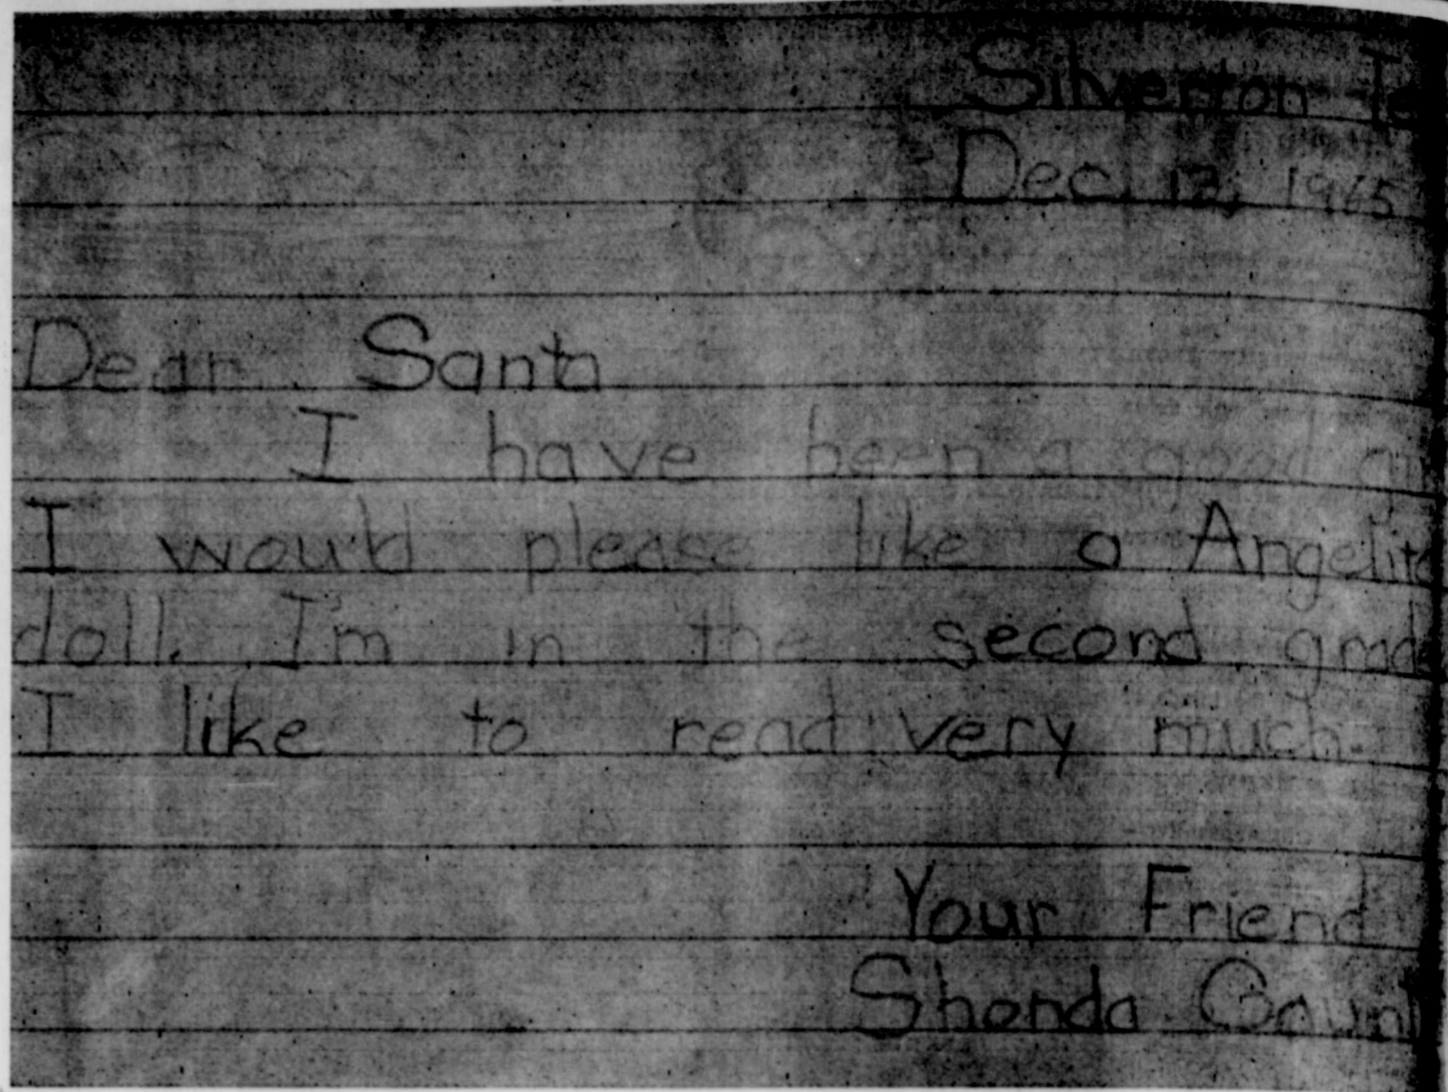 Silverton Te
Dec. 12, 1965
Dear Santa
I have been a good gir
I would please like a Angelite
doll. I'm in the second grade
I like to read very much.
Your Friend
Shonda Gaunt